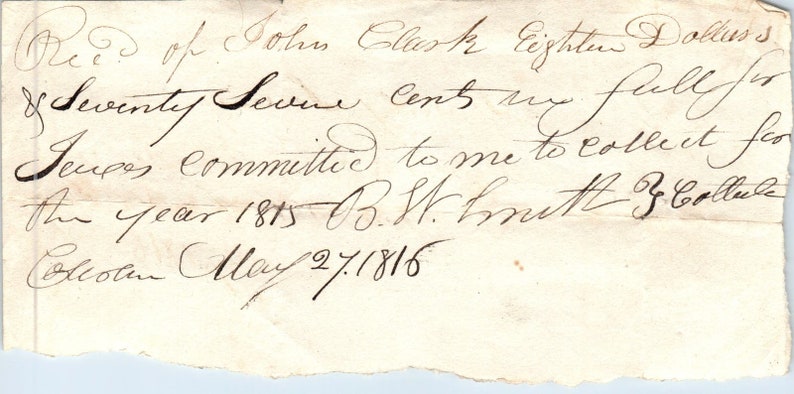 Rec'd of John Clark Eighteen Dollars
& Seventy Seven cents in full for
Taxes committed to me to collect for
the year 1815 B. W. Smith
May 27. 1816